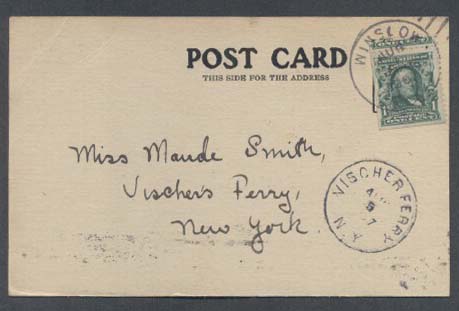 POST CARD
THIS SIDE FOR THE ADDRESS
WINSLOW
ONE CENT
Miss Maude Smith,
Vischer's Ferry,
New York.
VISCHER FERRY
N.Y.